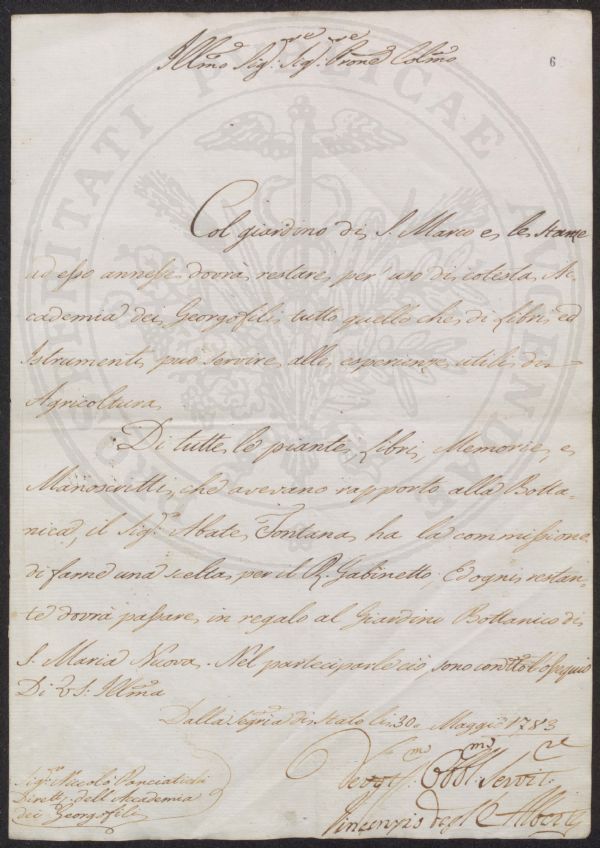 Illmo Sigre Sigre Prone Colmo
6
PROSPERITATI PUBLICAE AUGENDAE
Col giardino di S. Marco e le stanze
ad esso annesse dovrà restare per uso di cotesta Ac-
cademia dei Georgofili tutto quello che di libri ed
Istrumenti può servire alle esperienze utili di
Agricoltura
Di tutte le piante, libri, Memorie, e
Manoscritti, che avevano rapporto alla Botta-
nica, il Sigre Abate Fontana ha la commissione
di farne una scelta per il R. Gabinetto; Ed ogni restan-
te dovrà passare in regalo al Giardino Bottanico di
S. Maria Nuova. Nel parteciparle ciò, sono con tto l'ossequio
Di VS: Illma
Dalla Segria di Stato li 30 Maggio 1783
Sigre Niccolò Panciatichi
Dirett. dell'Accademia
dei Georgofili
Devmo Obblmo Servre
Vincenzio degl'Alberti